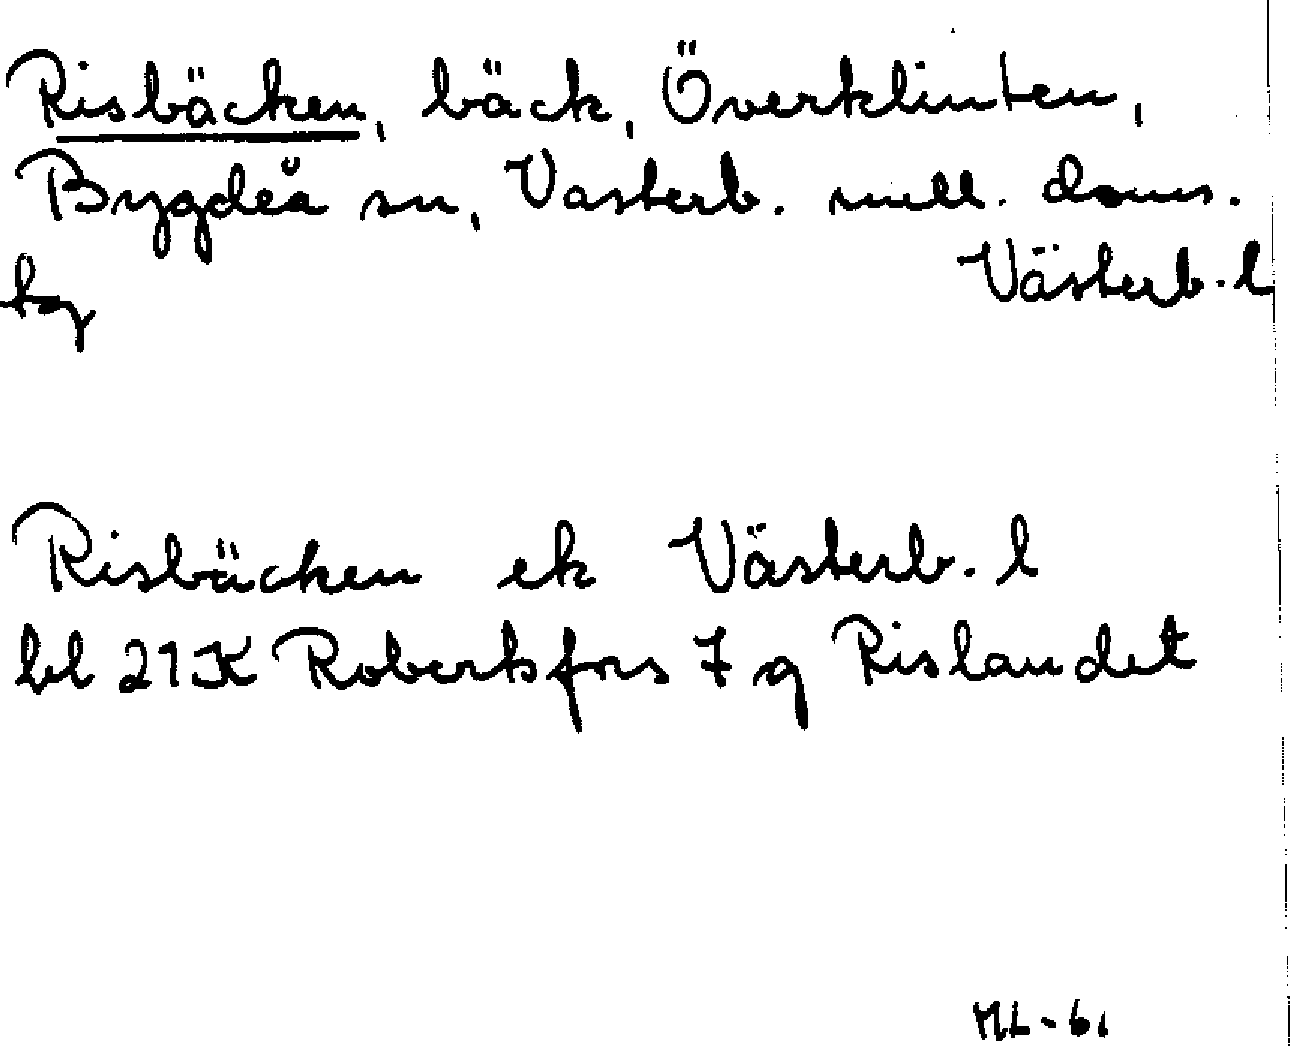 Risbäcken, bäck, Överklinten,
Bygdeå sn, Västerb. mell. doms.
tg Västerb. l
Risbäcken ek Västerb. l
bl 21K Robertsfors 7 g Rislandet
ML-61